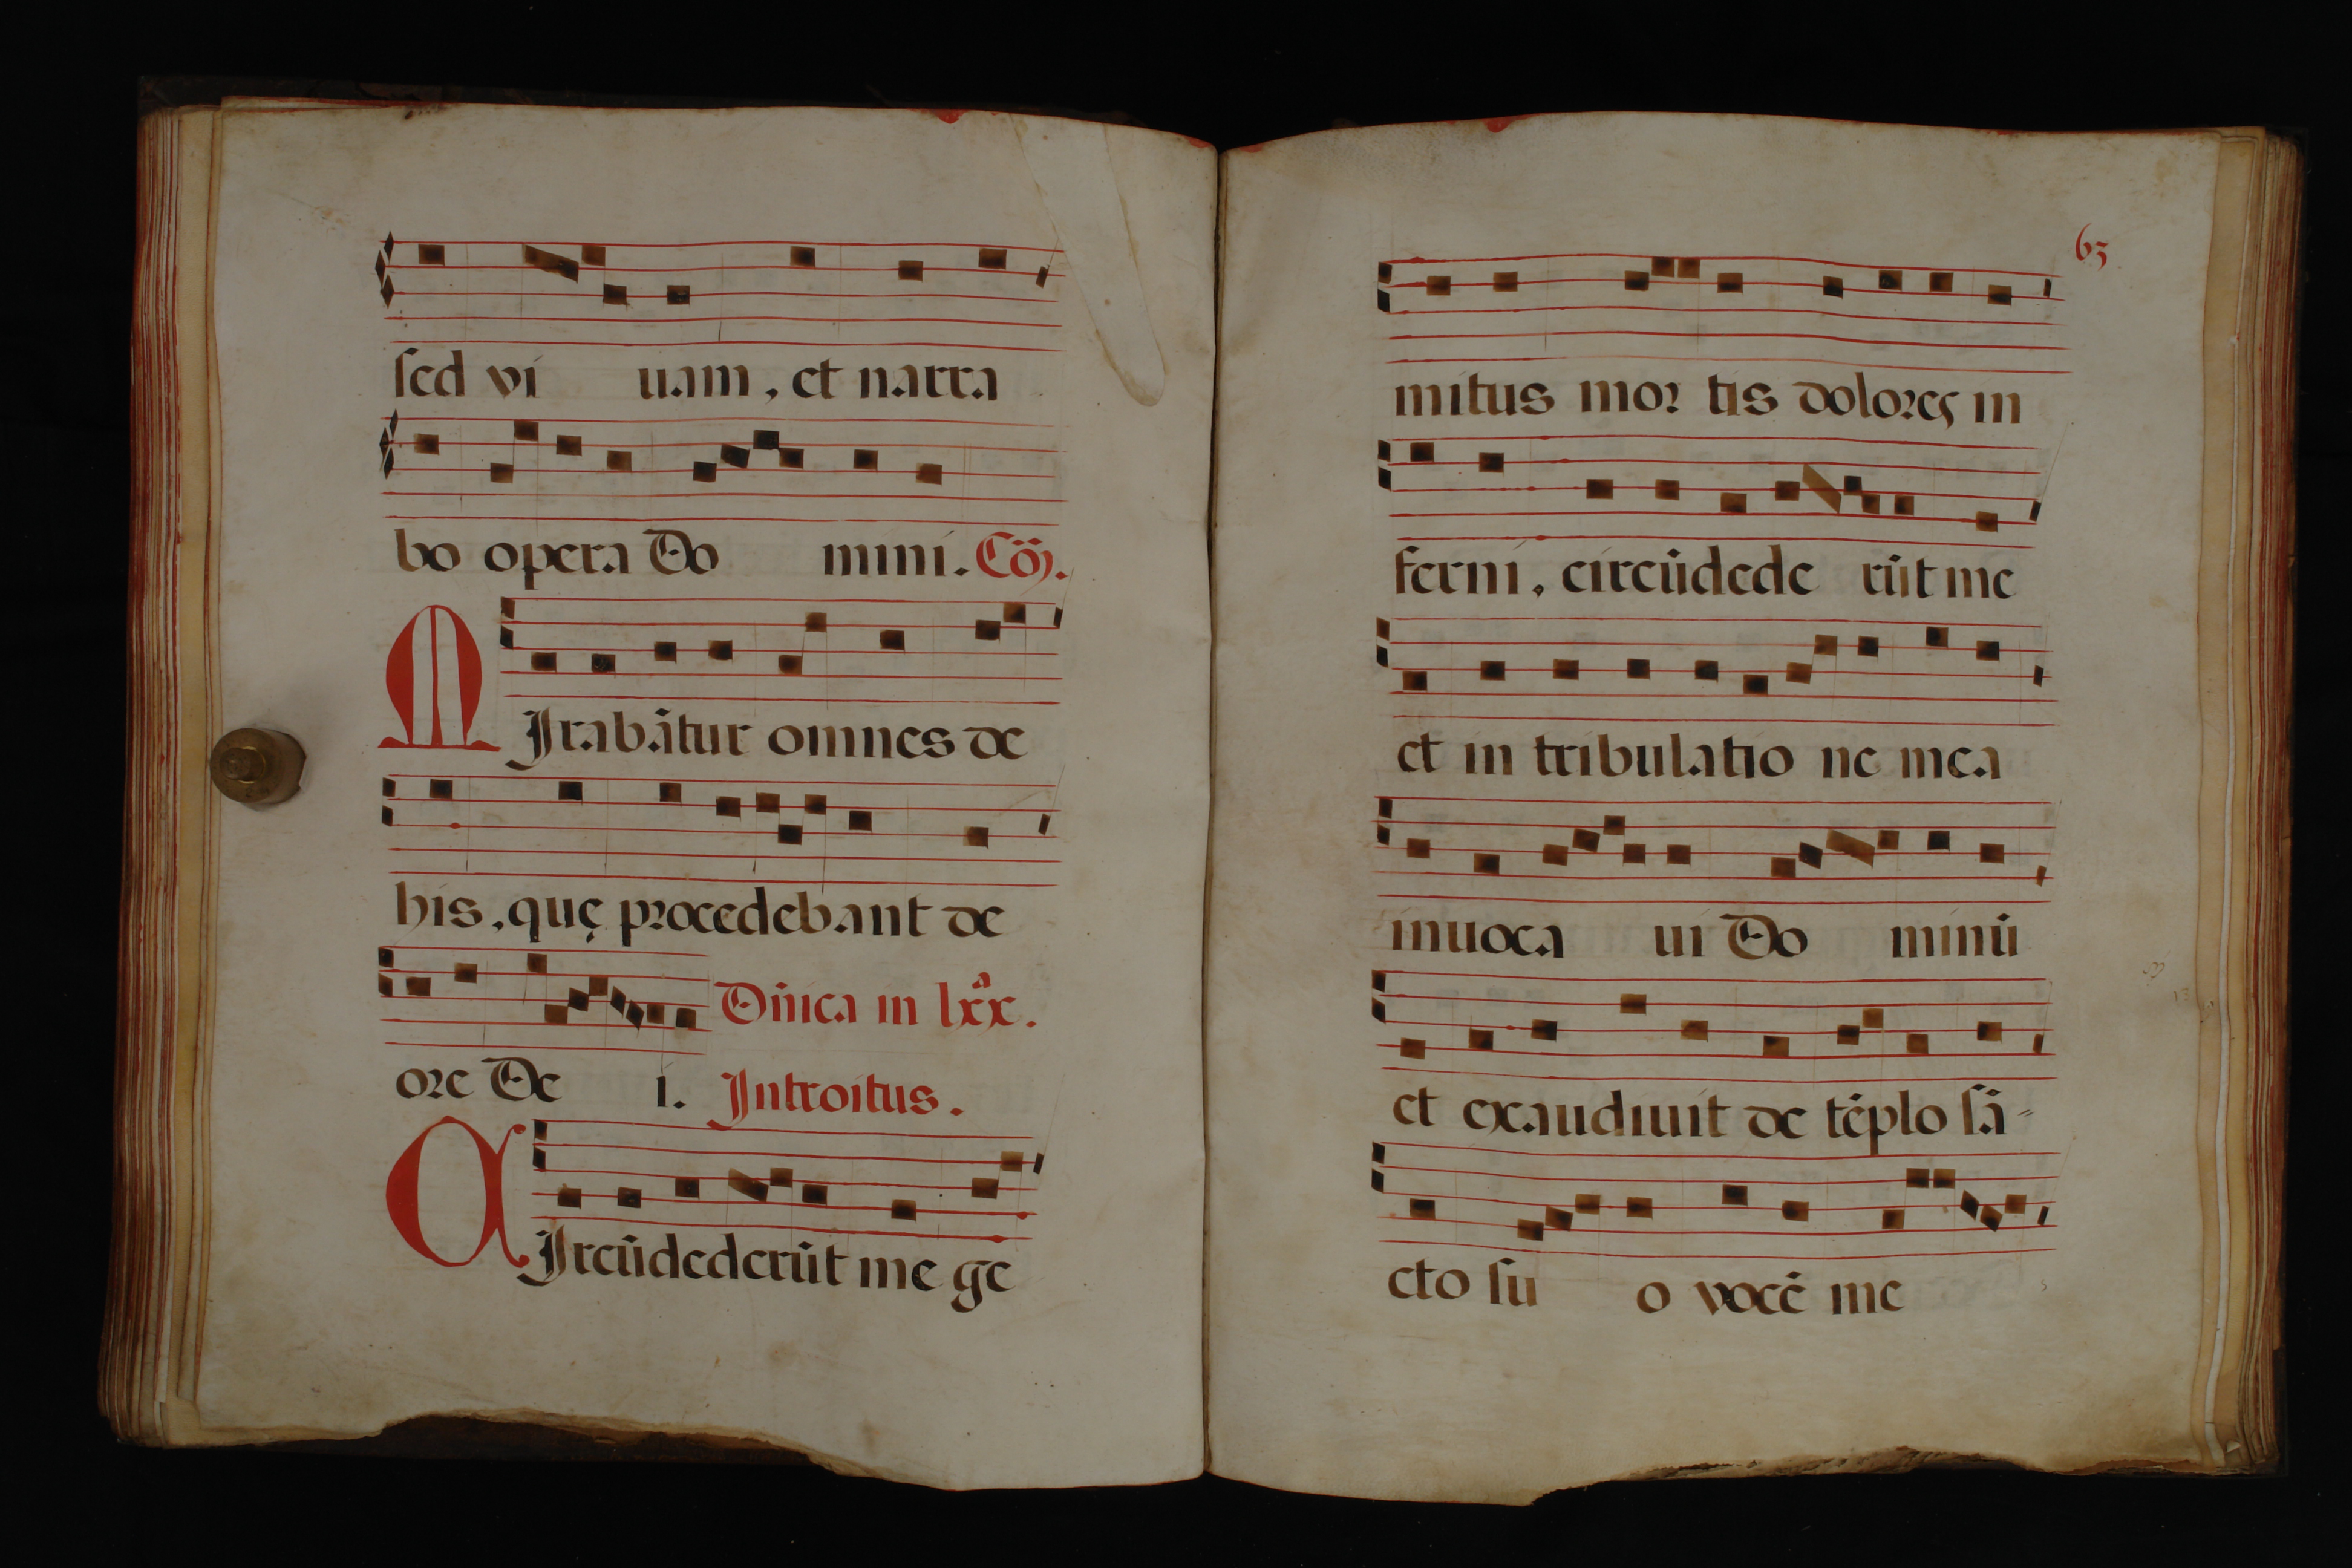 sed vi uam, et narra
bo opera Do mini. Cõ.
MIrabãtur omnes de
his, quę procedebant de
Dñica in lxx.ª
ore De i. Introitus.
CIrcũdederũt me ge
63
mitus mor tis dolores in
ferni, circũdede rũt me
et in tribulatio ne mea
inuoca ui Do minũ
et exaudiuit de tẽplo sã-
cto su o vocẽ me